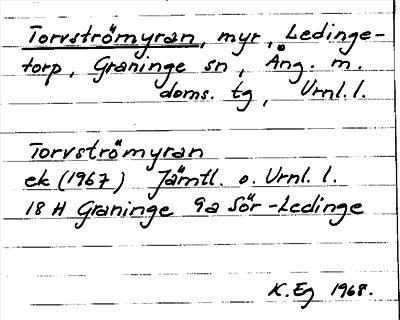 Torvströmyran, myr, Ledinge-
torp, Graninge sn, Ång. m.
doms. tg, Vrnl. l.
Torvströmyran
ek (1967) Jämtl. o. Vrnl. l.
18 H Graninge 9a Sör-Ledinge
K. Eg 1968.